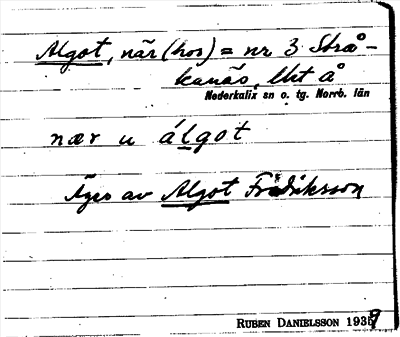 Algot, när (hos) = nr 3 Strå-
kanäs, lht å
Nederkalix sn o. tg. Norrb. län
nær u álgot
Äges av Algot Fredriksson
RUBEN DANIELSSON 1939